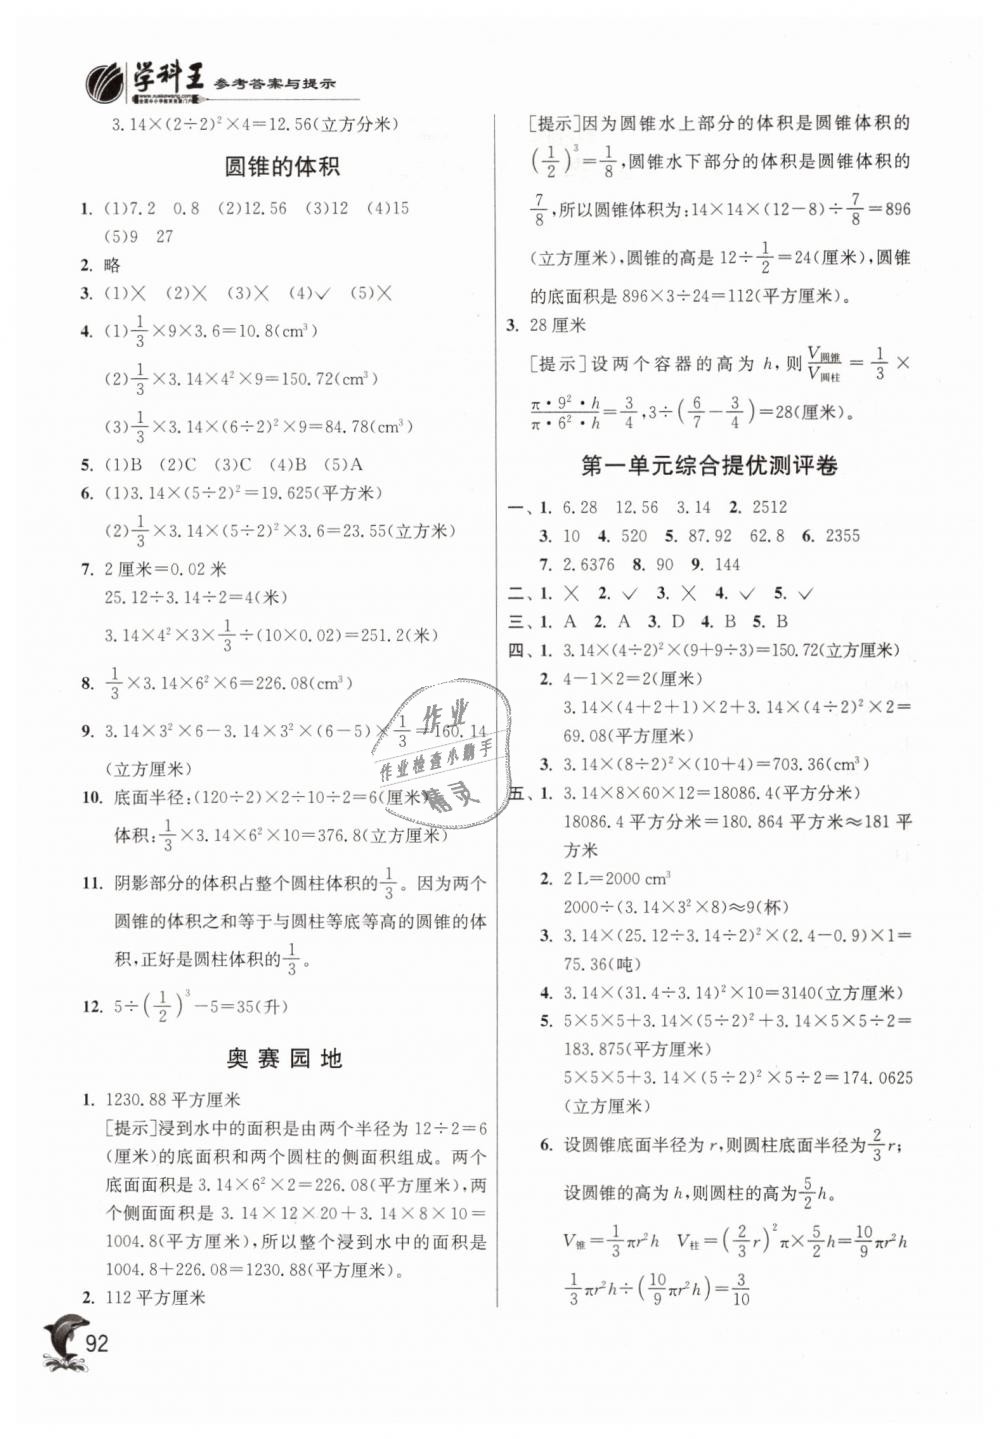 学科王 参考答案与提示
www.xuekewang.com
全国中小学教育资源门户
3.14×(2÷2)²×4=12.56(立方分米)
圆锥的体积
1. (1)7.2 0.8 (2)12.56 (3)12 (4)15
(5)9 27
2. 略
3. (1)× (2)× (3)× (4)✓ (5)×
4. (1)1/3×9×3.6=10.8(cm³)
(2)1/3×3.14×4²×9=150.72(cm³)
(3)1/3×3.14×(6÷2)²×9=84.78(cm³)
5. (1)B (2)C (3)C (4)B (5)A
6. (1)3.14×(5÷2)²=19.625(平方米)
(2)1/3×3.14×(5÷2)²×3.6=23.55(立方米)
7. 2厘米=0.02米
25.12÷3.14÷2=4(米)
3.14×4²×3×1/3÷(10×0.02)=251.2(米)
8. 1/3×3.14×6²×6=226.08(cm³)
9. 3.14×3²×6-3.14×3²×(6-5)×1/3=160.14
(立方厘米)
10. 底面半径:(120÷2)×2÷10÷2=6(厘米)
体积:1/3×3.14×6²×10=376.8(立方厘米)
11. 阴影部分的体积占整个圆柱体积的1/3。因为两个
圆锥的体积之和等于与圆柱等底等高的圆锥的体
积,正好是圆柱体积的1/3。
12. 5÷(1/2)³-5=35(升)
奥赛园地
1. 1230.88平方厘米
[提示]浸到水中的面积是由两个半径为12÷2=6
(厘米)的底面积和两个圆柱的侧面积组成。两个
底面面积是3.14×6²×2=226.08(平方厘米),两
个侧面面积是3.14×12×20+3.14×8×10=
1004.8(平方厘米),所以整个浸到水中的面积是
1004.8+226.08=1230.88(平方厘米)。
2. 112平方厘米
92
[提示]因为圆锥水上部分的体积是圆锥体积的
(1/2)³=1/8,圆锥水下部分的体积是圆锥体积的
7/8,所以圆锥体积为:14×14×(12-8)÷7/8=896
(立方厘米),圆锥的高是12÷1/2=24(厘米),圆锥
的底面积是896×3÷24=112(平方厘米)。
3. 28厘米
[提示]设两个容器的高为h,则V圆锥/V圆柱=1/3×
π·9²·h/π·6²·h=3/4,3÷(6/7-3/4)=28(厘米)。
第一单元综合提优测评卷
一、1. 6.28 12.56 3.14 2. 2512
3. 10 4. 520 5. 87.92 62.8 6. 2355
7. 2.6376 8. 90 9. 144
二、1. × 2. ✓ 3. × 4. ✓ 5. ✓
三、1. A 2. A 3. D 4. B 5. B
四、1. 3.14×(4÷2)²×(9+9÷3)=150.72(立方厘米)
2. 4-1×2=2(厘米)
3.14×(4+2+1)×2+3.14×(4÷2)²×2=
69.08(平方厘米)
3. 3.14×(8÷2)²×(10+4)=703.36(cm³)
五、1. 3.14×8×60×12=18086.4(平方分米)
18086.4平方分米=180.864平方米≈181平
方米
2. 2 L=2000 cm³
2000÷(3.14×3²×8)≈9(杯)
3. 3.14×(25.12÷3.14÷2)²×(2.4-0.9)×1=
75.36(吨)
4. 3.14×(31.4÷3.14)²×10=3140(立方厘米)
5. 5×5×5+3.14×(5÷2)²+3.14×5×5÷2=
183.875(平方厘米)
5×5×5+3.14×(5÷2)²×5÷2=174.0625
(立方厘米)
6. 设圆锥底面半径为r,则圆柱底面半径为2/3r;
设圆锥的高为h,则圆柱的高为5/2h。
V锥=1/3πr²h V柱=(2/3r)²π×5/2h=10/9πr²h
1/3πr²h÷(10/9πr²h)=3/10
作业
作业检查小助手
精灵